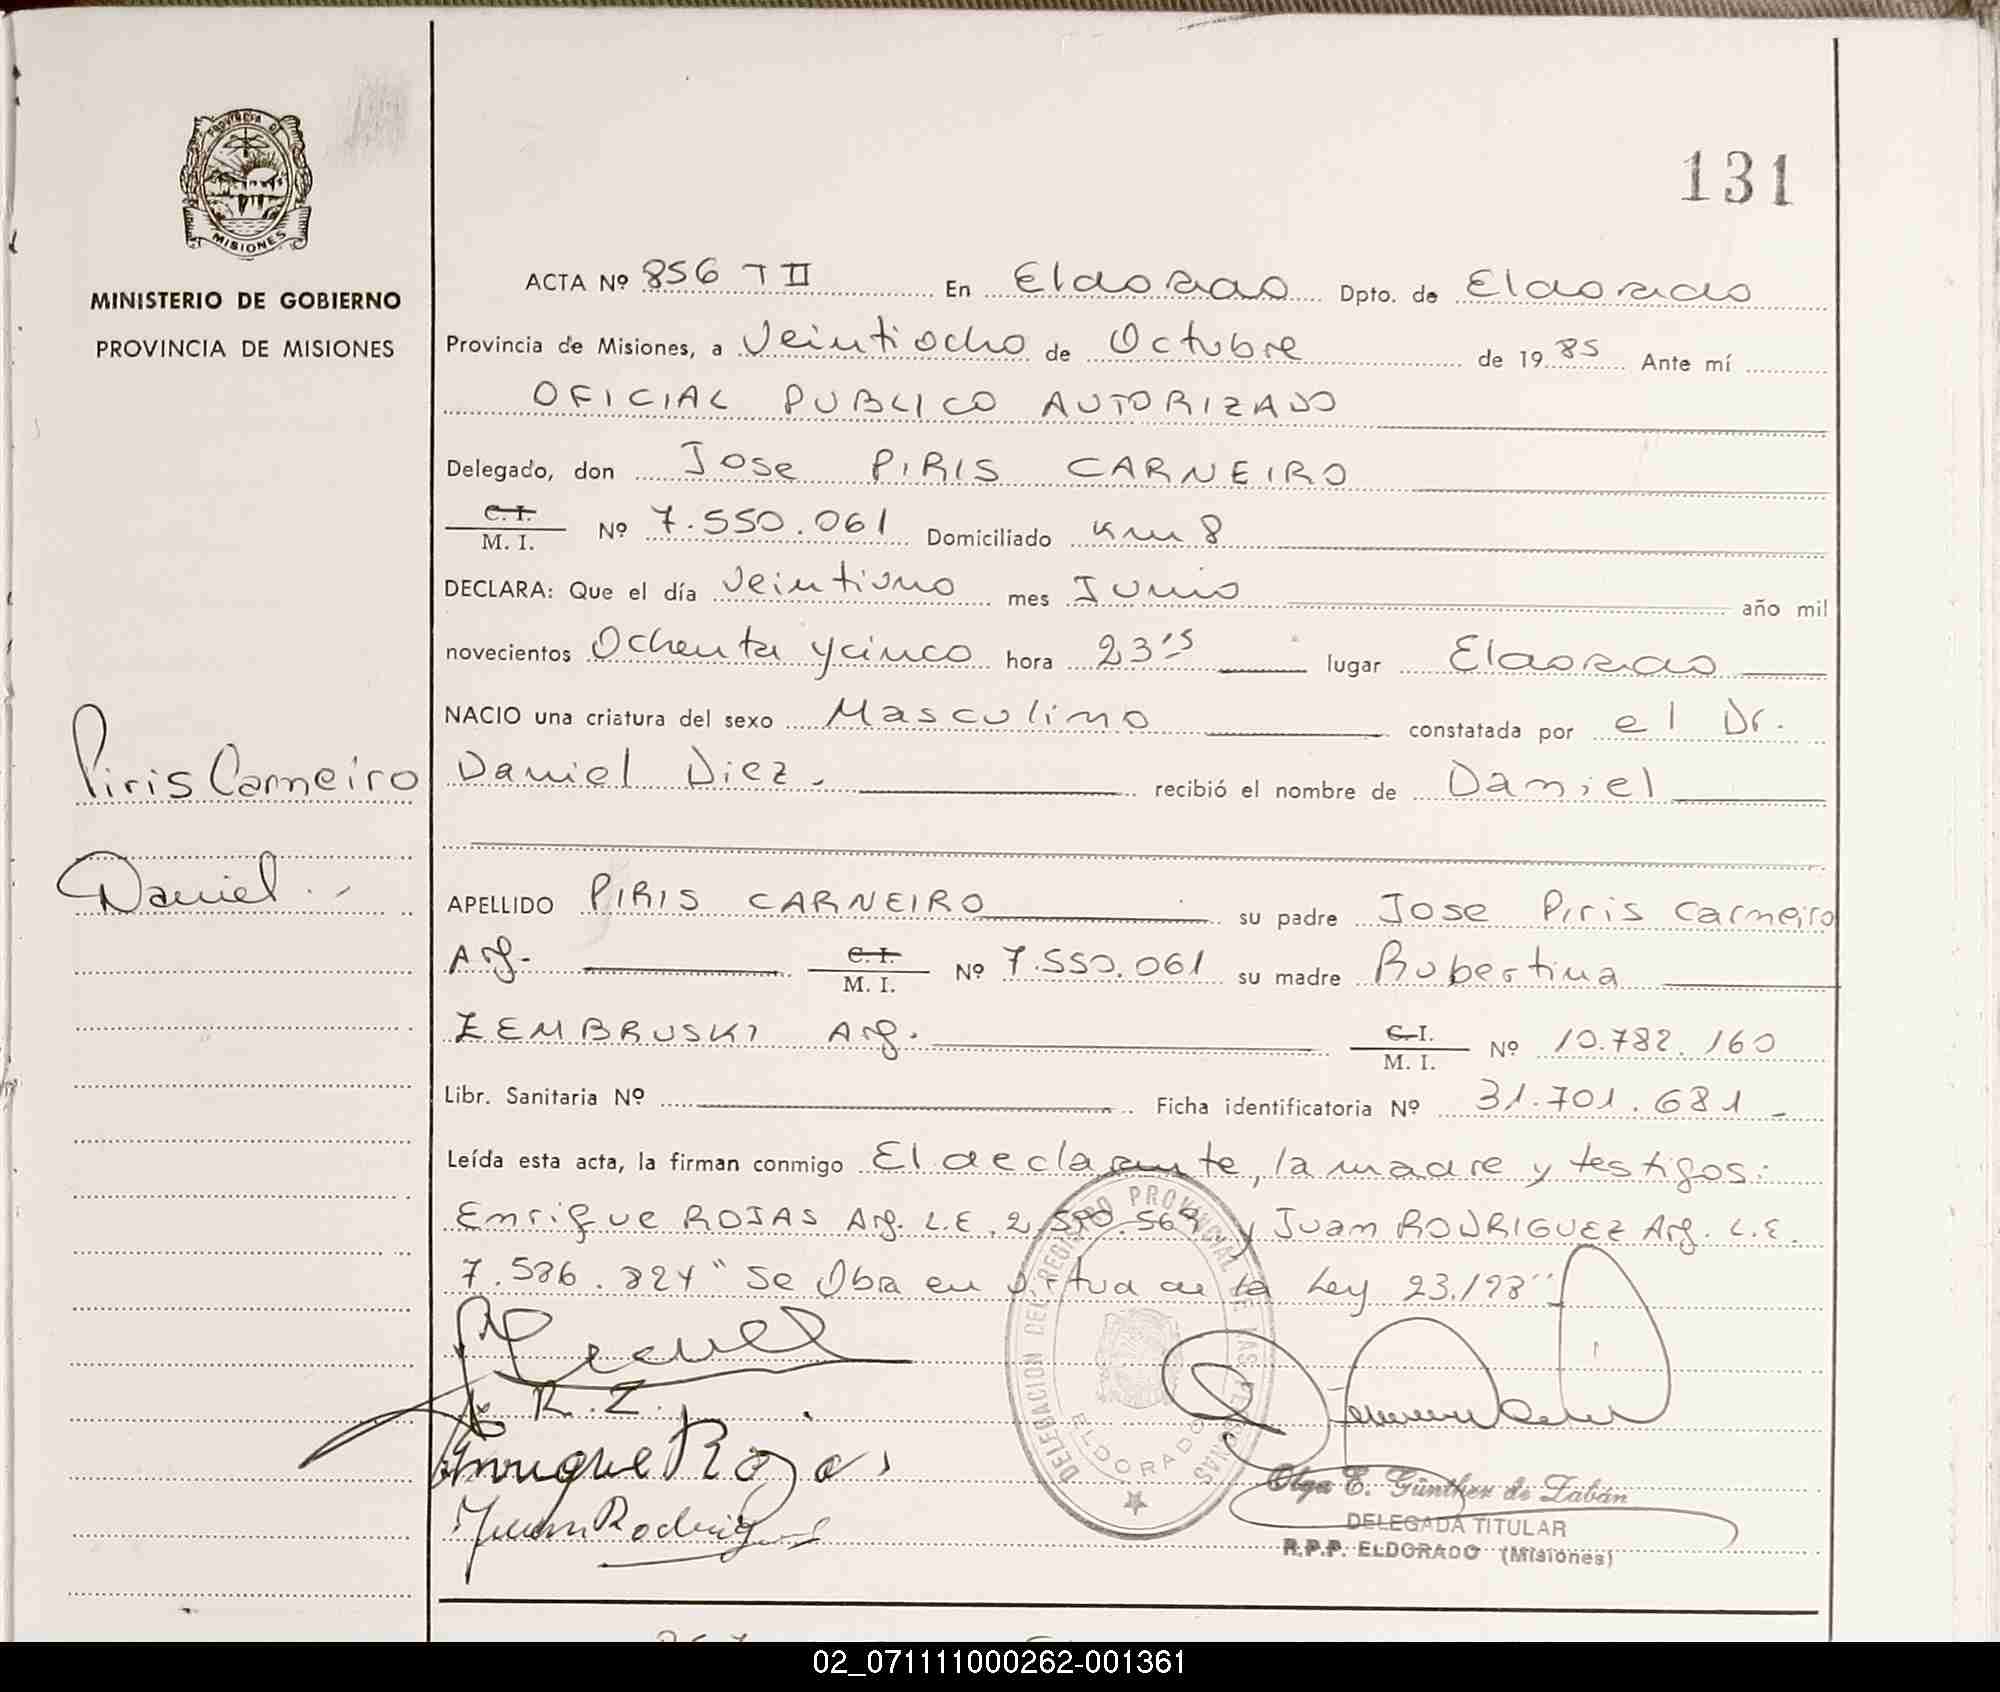 131
PROVINCIA DE
MISIONES
MINISTERIO DE GOBIERNO
PROVINCIA DE MISIONES
ACTA Nº 856 T II En Eldorado Dpto. de Eldorado
Provincia de Misiones, a Veintiocho de Octubre de 19 85 Ante mí
OFICIAL PUBLICO AUTORIZADO
Delegado, don Jose PIRIS CARNEIRO
C. I.
M. I. Nº 7.550.061 Domiciliado Km 8
DECLARA: Que el día Veintiuno mes Junio año mil
novecientos Ochenta y cinco hora 23 15 lugar Eldorado
NACIO una criatura del sexo Masculino constatada por el Dr.
Daniel Diez. recibió el nombre de Daniel
Piris Carneiro
Daniel.
APELLIDO PIRIS CARNEIRO su padre Jose Piris Carneiro
Arg. C. I. M. I. Nº 7.550.061 su madre Robertina
ZEMBRUSKI Arg. C. I. M. I. Nº 10.782.160
Libr. Sanitaria Nº Ficha identificatoria Nº 31.701.681
Leída esta acta, la firman conmigo El declarante, la madre y testigos:
Enrique ROJAS Arg. L.E. y Juan RODRIGUEZ Arg. L.E.
"Se Obra en virtud de la Ley 23.198"
R. Z.
Enrique Rojas
Juan Rodriguez
DELEGACION DEL REGISTRO PROVINCIAL DE LAS PERSONAS
ELDORADO
Olga E. Günther de Zabán
DELEGADA TITULAR
R.P.P. ELDORADO (Misiones)
02_071111000262-001361